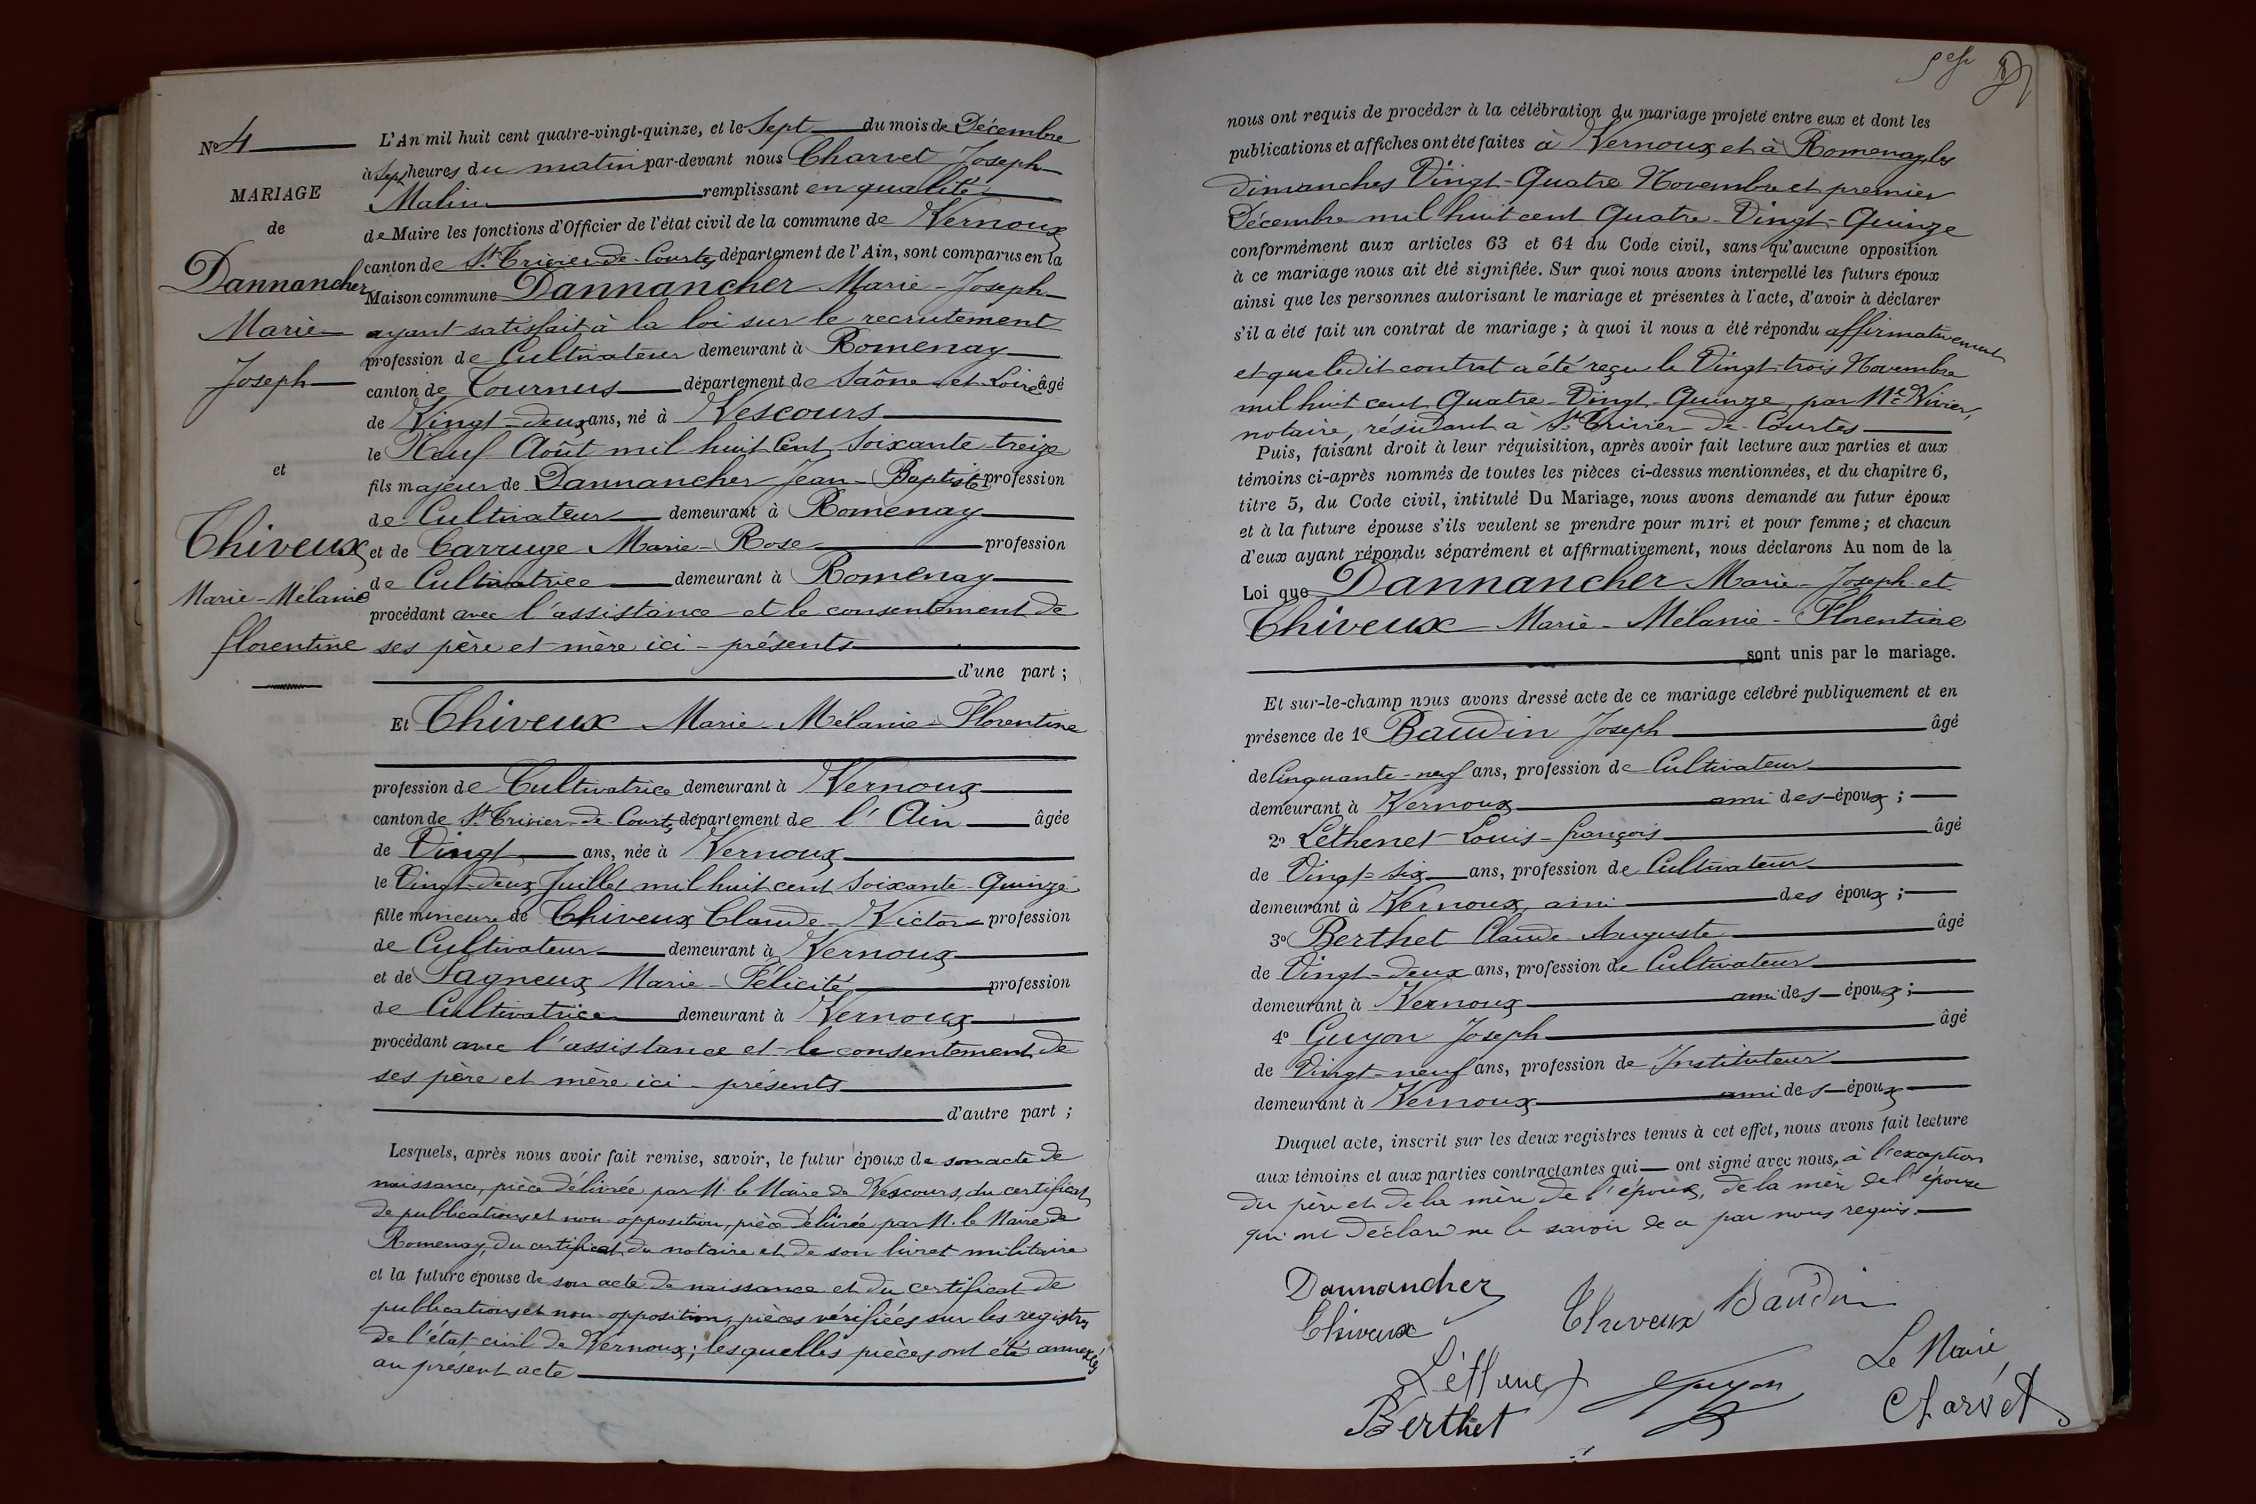 Nº 4
MARIAGE
de
Dannancher
Marie
Joseph
et
Chiveux
Marie-Mélanie
florentine
L'An mil huit cent quatre-vingt-quinze, et le Sept du mois de Décembre
à sept heures du matin par-devant nous Charvet Joseph
Malin remplissant en qualité
de Maire les fonctions d'Officier de l'état civil de la commune de Vernoux
canton de St Trivier-de-Courtes département de l'Ain, sont comparus en la
Maison commune Dannancher Marie-Joseph
ayant satisfait à la loi sur le recrutement
profession de Cultivateur demeurant à Romenay
canton de Tournus département de Saône-et-Loire âgé
de Vingt-deux ans, né à Vescours
le Neuf Août mil huit Cent Soixante-treize
fils majeur de Dannancher Jean-Baptiste profession
de Cultivateur demeurant à Romenay
et de Carruge Marie-Rose profession
de Cultivatrice demeurant à Romenay
procédant avec l'assistance et le consentement de
ses père et mère ici-présents
d'une part ;
Et Chiveux Marie-Mélanie-Florentine
profession de Cultivatrice demeurant à Vernoux
canton de St Trivier-de-Courtes département de l'Ain âgée
de Vingt ans, née à Vernoux
le Vingt-deux Juillet mil huit cent soixante-Quinze
fille mineure de Chiveux Claude-Victor profession
de Cultivateur demeurant à Vernoux
et de Pagneux Marie-Félicité profession
de Cultivatrice demeurant à Vernoux
procédant avec l'assistance et le consentement de
ses père et mère ici-présents
d'autre part ;
Lesquels, après nous avoir fait remise, savoir, le futur époux de son acte de
naissance, pièce délivrée par M. le Maire de Vescours, du certificat
de publications et non-opposition, pièce délivrée par M. le Maire de
Romenay, du certificat du notaire et de son livret militaire
et la future épouse de son acte de naissance et du certificat de
publications et non-opposition, pièces vérifiées sur les registres
de l'état civil de Vernoux ; lesquelles pièces ont été annexées
au présent acte
nous ont requis de procéder à la célébration du mariage projeté entre eux et dont les
publications et affiches ont été faites à Vernoux et à Romenay, les
dimanches Vingt-Quatre Novembre et premier
Décembre mil huit cent Quatre-Vingt-Quinze
conformément aux articles 63 et 64 du Code civil, sans qu'aucune opposition
à ce mariage nous ait été signifiée. Sur quoi nous avons interpellé les futurs époux
ainsi que les personnes autorisant le mariage et présentes à l'acte, d'avoir à déclarer
s'il a été fait un contrat de mariage ; à quoi il nous a été répondu affirmativement
et que ledit contrat a été reçu le Vingt-trois Novembre
mil huit cent Quatre-Vingt-Quinze par Me Vivier,
notaire, résidant à St Trivier-de-Courtes
Puis, faisant droit à leur réquisition, après avoir fait lecture aux parties et aux
témoins ci-après nommés de toutes les pièces ci-dessus mentionnées, et du chapitre 6,
titre 5, du Code civil, intitulé Du Mariage, nous avons demandé au futur époux
et à la future épouse s'ils veulent se prendre pour mari et pour femme ; et chacun
d'eux ayant répondu séparément et affirmativement, nous déclarons Au nom de la
Loi que Dannancher Marie-Joseph et
Chiveux Marie-Mélanie-Florentine
sont unis par le mariage.
Et sur-le-champ nous avons dressé acte de ce mariage célébré publiquement et en
présence de 1º Baudin Joseph âgé
de Cinquante-neuf ans, profession de Cultivateur
demeurant à Vernoux ami des époux ;
2º Léthenet Louis-françois âgé
de Vingt-six ans, profession de Cultivateur
demeurant à Vernoux, ami des époux ;
3º Berthet Claude Auguste âgé
de Vingt-deux ans, profession de Cultivateur
demeurant à Vernoux ami des époux ;
4º Guyon Joseph âgé
de Vingt-neuf ans, profession de Instituteur
demeurant à Vernoux ami des époux
Duquel acte, inscrit sur les deux registres tenus à cet effet, nous avons fait lecture
aux témoins et aux parties contractantes qui ont signé avec nous, à l'exception
du père et de la mère de l'époux, de la mère de l'épouse
qui ont déclaré ne le savoir de ce par nous requis.
Dannancher
Chiveux
Chiveux
Baudin
Léthenet
Guyon
Le Maire
Berthet
Charvet